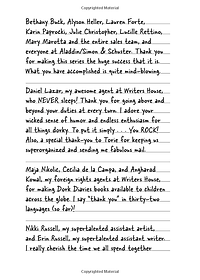 Bethany Buck, Alyson Heller, Lauren Forte,
Karin Paprocki, Julie Christopher, Lucille Rettino,
Mary Marotta and the entire sales team, and
everyone at Aladdin/Simon & Schuster. Thank you
for making this series the huge success that it is.
What you have accomplished is quite mind-blowing.
Daniel Lazar, my awesome agent at Writers House,
who NEVER sleeps! Thank you for going above and
beyond your duties at every turn. I adore your
wicked sense of humor and endless enthusiasm for
all things dorky. To put it simply . . . You ROCK!
Also, a special thank-you to Torie for keeping us
superorganized and sending me fabulous mail.
Maja Nikolic, Cecilia de la Campa, and Angharad
Kowal, my foreign rights agents at Writers House,
for making Dork Diaries books available to children
across the globe. I say "thank you" in thirty-two
languages (so far)!
Nikki Russell, my supertalented assistant artist,
and Erin Russell, my supertalented assistant writer.
I really cherish the time we all spend together